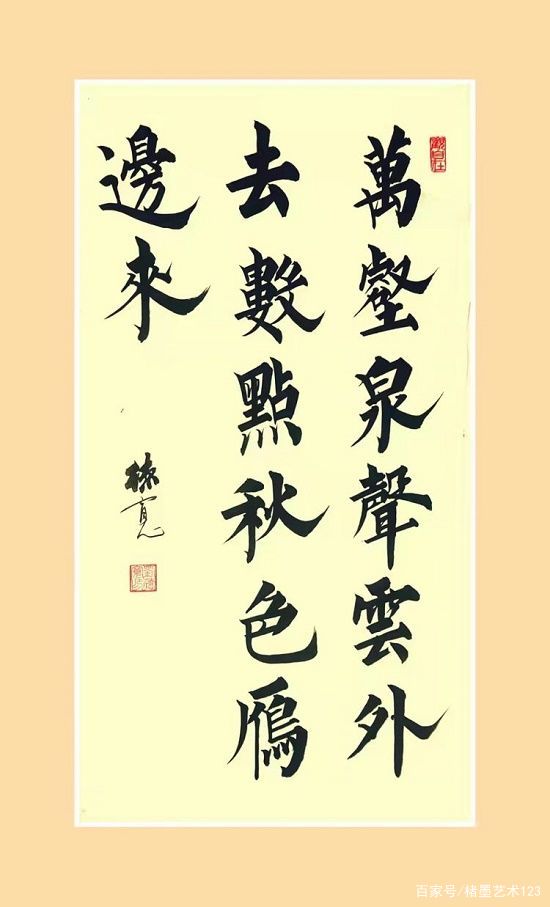 萬壑泉聲雲外
去數點秋色鴈
邊來
百家号/楮墨艺术123